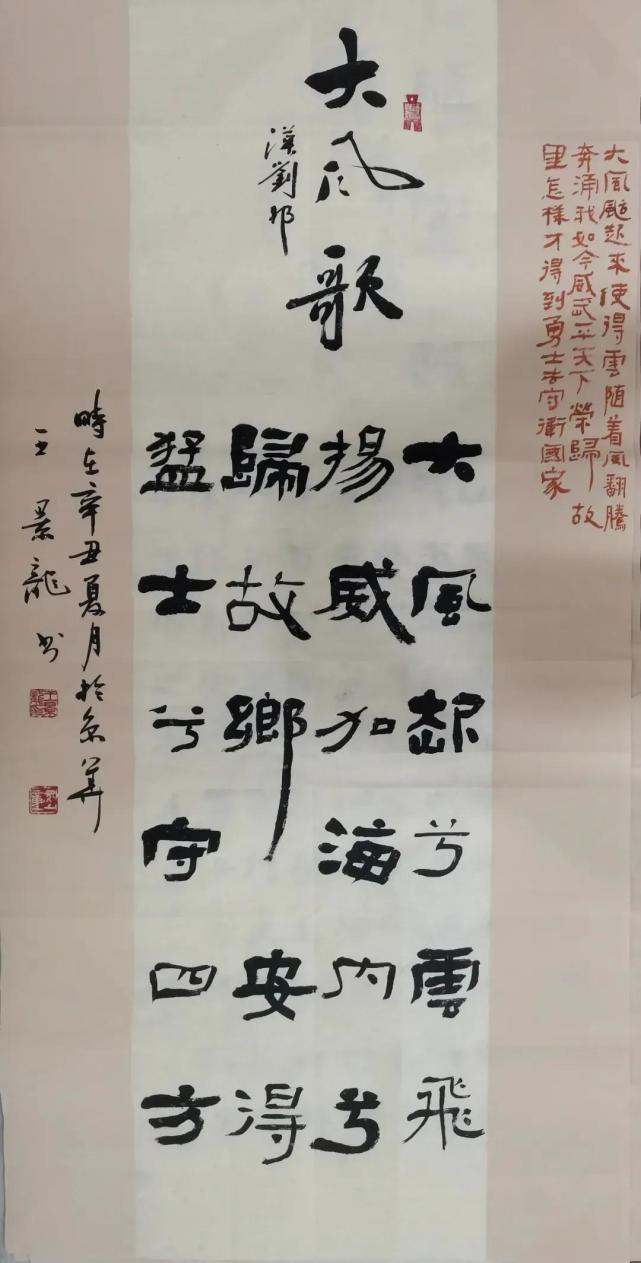 大風颳起來使得雲随着風翻騰
奔涌我如今威武平天下榮歸故
里怎樣才得到勇士去守衛國家
大风歌
漢劉邦
大風起兮雲飛
揚威加海内兮
歸故鄉安得
猛士兮守四方
時在辛丑夏月於京華
王景龍书